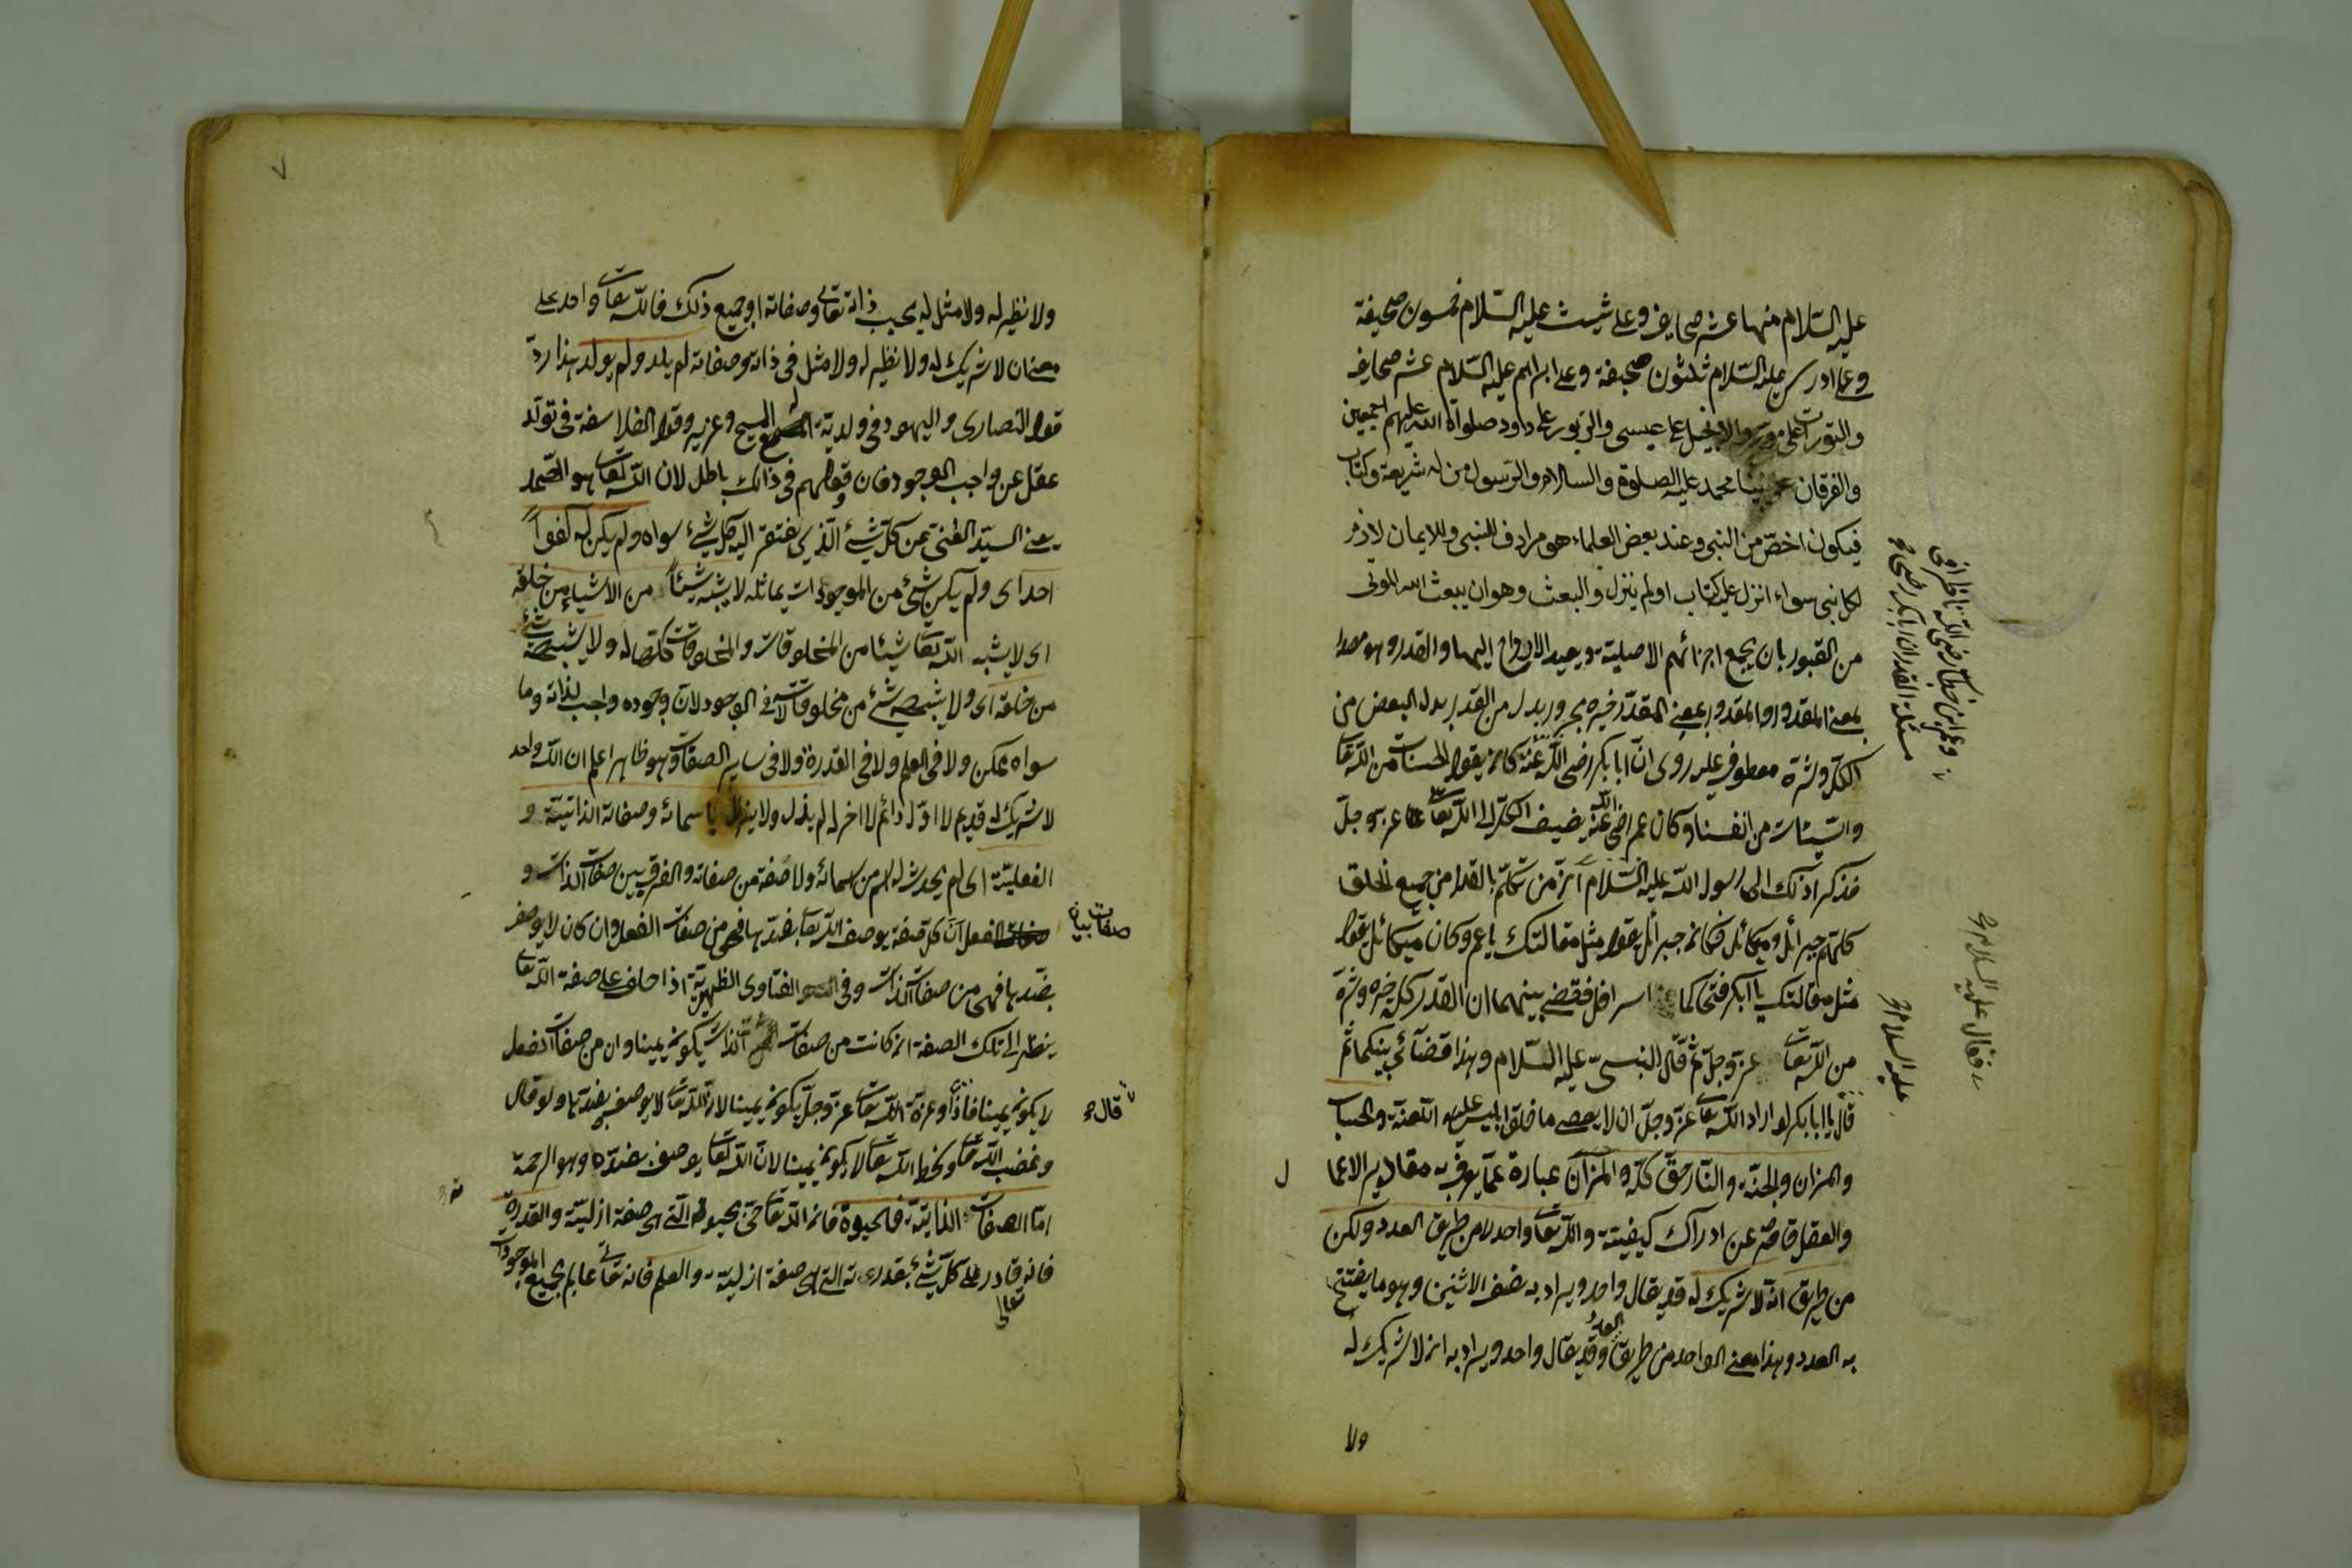 عليه السّلام منها عشر صحايف وعلى شيث عليه السّلام خمسون صحيفة
وعلى ادريس عليه السّلام ثلثون صحيفة وعلى ابراهيم عليه السّلام عشر صحايف
والتورات على والانجيل على عيسى والزبور على داود صلواة الله عليهم اجمعين
والفرقان نبينا محمد عليه الصلوة والسلام والرسول من له شريعة وكتاب
فيكون اخصّ من النبي وعند بعض العلماء هو مرادف للنبي وللايمان لازم
لكل نبى سواء انزل عليه كتاب او لم ينزل والبعث وهو ان يبعث الله الموتى
من القبور بان يجمع اجزائهم الاصلية ويعيد الارواح اليها والقدر وهو مصدر
بمعنى المقدور والمقدور بمعنى المقدّر خيره مجرور بدل من القدر بدل البعض من
الكلّ وشرّه معطوف عليه روى انّ ابا بكر رضى الله عنه كان يقول الحسنات من الله تعا
والسّيئات من انفسنا وكان عمر رضى الله عنه يضيف الكلّ الى الله تعا عزّ وجلّ
فذكر اذلك الى رسول الله عليه السّلام انّ من تكلّم بالقدر من جميع الخلق
كلهم جبرائل وميكائل فكان جبرائل يقول مثل مقالتك يا عمر وكان ميكائل يقول
مثل مقالتك يا ابكر فتحاكما اسرافل فقضى بينهما ان القدر كلّه خيره وشرّه
من الله تعا عزّ وجلّ ثم قال النبىّ عليه السّلام وهذا قضائي بينكما ثم
قال يا ابا بكر لو اراد الله تعا عزّ وجلّ ان لا يعصى ما خلق ابليس عليه اللعنة والحساب
والميزان والجنّة والنّار حقّ كلّه والميزان عبارة عمّا يعرف به مقادير الاعما ل
والعقل قاصر عن ادراك كيفيّته والله تعا واحد لا من طريق العدد ولكن
من طريق انه لا شريك له قد يقال واحد ويراد به نصف الاثنين وهو ما يفتتح
به العدد وهذا معنى الواحد من طريق العدد وقد يقال واحد ويراد به انه لا شريك له
ولا
مسئلة القدر ان ابا بكر رضى
وعمر ابن خطاب رضى الله تناظرا فى
فقال عليه السلام
عليه السلام
٧
ولا نظير له ولا مثل له بحسب ذاته تعالى وصفاته او جميع ذلك فالله تعا واحد على
معنى ان لا شريك له ولا نظير له ولا مثل فى ذاته وصفاته لم يلد ولم يولد هذا ردّ
قول النصارى واليهود فى ولدية المسيح وعزير وقول الفلاسفة فى تولّد
عقل عن واجب الوجود فان قولهم فى ذلك باطل لان الله تعا هو الصّمد
يعنى السيّد الغنى عن كلّ شئ الّذى يفتقر اليه كل شئ سواه ولم يكن له كفواً
احد اى ولم يكن شئ من الموجودات يماثله لا يشبه شيئاً من الاشياء من خلقه
اى لا يشبه الله تعا شيئا من المخلوقات والمخلوقات كلّها له ولا يشبهه شئ
من خلقه اى ولا يشبهه شئ من مخلوقاته لا فى الوجود لان وجوده واجب لذاته وما
سواه ممكن ولا فى العلم ولا فى القدرة ولا فى ساير الصفات وهو ظاهر اعلم ان الله واحد
لا شريك له قديم لا اوّل دائم لا اخر له لم يزل ولا يزال باسمائه وصفاته الذاتيّة و
الفعليّة اى لم يحدث له اسم من اسمائه ولا صفة من صفاته والفرق بين صفات الذات و
صفات الفعل انّ كل صفة يوصف الله تعا بضدّها فهى من صفات الفعل وان كان لا يوصف
بضدّها فهى من صفات الذات وفى الفتاوى الظهيريّة اذا حلف على صفة الله تعا
ينظر الى تلك الصفة ان كانت من صفات الذات يكون يمينا وان من صفات الفعل
لا يكون يمينا فاذا وعزة الله تعا عزّ وجلّ يكون يمينا لان الله تعا لا يوصف بضدّها ولو قال
وغضب الله تعا وسخط الله تعا لا يكون يمينا لان الله تعا يوصف بضدّه وهو الرحمة
امّا الصفات الذاتيّة فالحيوة فان الله تعا حىّ بحيوته الّتى هى صفة ازليّة والقدرة
فانه قادر على كلّ شئ بقدرته التى هى صفة ازليّة والعلم فانه تعا عالم بجميع الموجودات
تعالى
قال